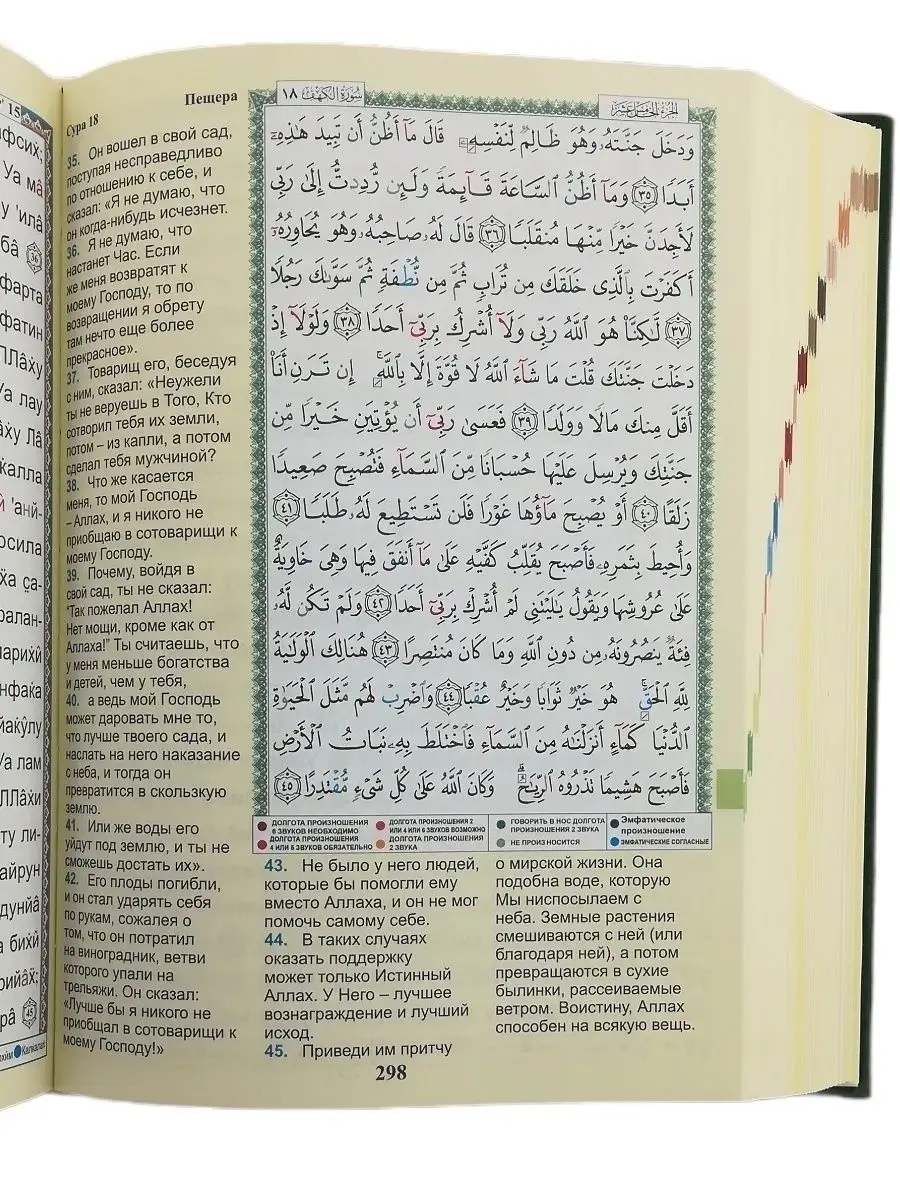 15
фсих;
Уа мâ
у 'илâ
бâ 36
фарта
фатин
ЛЛâху
Уа лау
âху Лâ
калла
й 'анй-
осила
ха са-
ралан-
ларихй
нфака
йакûлу
Уа лам
ЛЛâхи
ту ли-
айрун
дунйâ
а бихй
рийâх;
рâ 45
Калкала
Сура 18
Пещера
35. Он вошел в свой сад,
поступая несправедливо
по отношению к себе, и
сказал: «Я не думаю, что
он когда-нибудь исчезнет.
36. Я не думаю, что
настанет Час. Если
же меня возвратят к
моему Господу, то по
возвращении я обрету
там нечто еще более
прекрасное».
37. Товарищ его, беседуя
с ним, сказал: «Неужели
ты не веруешь в Того, Кто
сотворил тебя их земли,
потом – из капли, а потом
сделал тебя мужчиной?
38. Что же касается
меня, то мой Господь
– Аллах, и я никого не
приобщаю в сотоварищи к
моему Господу.
39. Почему, войдя в
свой сад, ты не сказал:
"Так пожелал Аллах!
Нет мощи, кроме как от
Аллаха!” Ты считаешь, что
у меня меньше богатства
и детей, чем у тебя,
40. а ведь мой Господь
может даровать мне то,
что лучше твоего сада, и
наслать на него наказание
с неба, и тогда он
превратится в скользкую
землю.
41. Или же воды его
уйдут под землю, и ты не
сможешь достать их».
42. Его плоды погибли,
и он стал ударять себя
по рукам, сожалея о
том, что он потратил
на виноградник, ветви
которого упали на
трельяжи. Он сказал:
«Лучше бы я никого не
приобщал в сотоварищи к
моему Господу!»
سُورَةُ الكَهْف ١٨
الجزء الخامس عشر
وَدَخَلَ جَنَّتَهُۥ وَهُوَ ظَالِمٌ لِّنَفْسِهِۦ قَالَ مَآ أَظُنُّ أَن تَبِيدَ هَـٰذِهِۦٓ
أَبَدًا ٣٥ وَمَآ أَظُنُّ ٱلسَّاعَةَ قَآئِمَةً وَلَئِن رُّدِدتُّ إِلَىٰ رَبِّى
لَأَجِدَنَّ خَيْرًا مِّنْهَا مُنقَلَبًا ٣٦ قَالَ لَهُۥ صَاحِبُهُۥ وَهُوَ يُحَاوِرُهُۥٓ
أَكَفَرْتَ بِٱلَّذِى خَلَقَكَ مِن تُرَابٍ ثُمَّ مِن نُّطْفَةٍ ثُمَّ سَوَّىٰكَ رَجُلًا
٣٧ لَّـٰكِنَّا۠ هُوَ ٱللَّهُ رَبِّى وَلَآ أُشْرِكُ بِرَبِّىٓ أَحَدًا ٣٨ وَلَوْلَآ إِذْ
دَخَلْتَ جَنَّتَكَ قُلْتَ مَا شَآءَ ٱللَّهُ لَا قُوَّةَ إِلَّا بِٱللَّهِ ۚ إِن تَرَنِ أَنَا۠
أَقَلَّ مِنكَ مَالًا وَوَلَدًا ٣٩ فَعَسَىٰ رَبِّىٓ أَن يُؤْتِيَنِ خَيْرًا مِّن
جَنَّتِكَ وَيُرْسِلَ عَلَيْهَا حُسْبَانًا مِّنَ ٱلسَّمَآءِ فَتُصْبِحَ صَعِيدًا
زَلَقًا ٤٠ أَوْ يُصْبِحَ مَآؤُهَا غَوْرًا فَلَن تَسْتَطِيعَ لَهُۥ طَلَبًا ٤١
وَأُحِيطَ بِثَمَرِهِۦ فَأَصْبَحَ يُقَلِّبُ كَفَّيْهِ عَلَىٰ مَآ أَنفَقَ فِيهَا وَهِىَ خَاوِيَةٌ
عَلَىٰ عُرُوشِهَا وَيَقُولُ يَـٰلَيْتَنِى لَمْ أُشْرِكْ بِرَبِّىٓ أَحَدًا ٤٢ وَلَمْ تَكُن لَّهُۥ
فِئَةٌ يَنصُرُونَهُۥ مِن دُونِ ٱللَّهِ وَمَا كَانَ مُنتَصِرًا ٤٣ هُنَالِكَ ٱلْوَلَـٰيَةُ
لِلَّهِ ٱلْحَقِّ ۚ هُوَ خَيْرٌ ثَوَابًا وَخَيْرٌ عُقْبًا ٤٤ وَٱضْرِبْ لَهُم مَّثَلَ ٱلْحَيَوٰةِ
ٱلدُّنْيَا كَمَآءٍ أَنزَلْنَـٰهُ مِنَ ٱلسَّمَآءِ فَٱخْتَلَطَ بِهِۦ نَبَاتُ ٱلْأَرْضِ
فَأَصْبَحَ هَشِيمًا تَذْرُوهُ ٱلرِّيَـٰحُ ۗ وَكَانَ ٱللَّهُ عَلَىٰ كُلِّ شَىْءٍ مُّقْتَدِرًا ٤٥
ДОЛГОТА ПРОИЗНОШЕНИЯ
6 ЗВУКОВ НЕОБХОДИМО
ДОЛГОТА ПРОИЗНОШЕНИЯ
4 ИЛИ 5 ЗВУКОВ ОБЯЗАТЕЛЬНО
ДОЛГОТА ПРОИЗНОШЕНИЯ 2
ИЛИ 4 ИЛИ 6 ЗВУКОВ ВОЗМОЖНО
ДОЛГОТА ПРОИЗНОШЕНИЯ
2 ЗВУКА
ГОВОРИТЬ В НОС ДОЛГОТА
ПРОИЗНОШЕНИЯ 2 ЗВУКА
НЕ ПРОИЗНОСИТСЯ
Эмфатическое
произношение
ЭМФАТИЧЕСКИЕ СОГЛАСНЫЕ
43. Не было у него людей,
которые бы помогли ему
вместо Аллаха, и он не мог
помочь самому себе.
44. В таких случаях
оказать поддержку
может только Истинный
Аллах. У Него – лучшее
вознаграждение и лучший
исход.
45. Приведи им притчу
о мирской жизни. Она
подобна воде, которую
Мы ниспосылаем с
неба. Земные растения
смешиваются с ней (или
благодаря ней), а потом
превращаются в сухие
былинки, рассеиваемые
ветром. Воистину, Аллах
способен на всякую вещь.
298